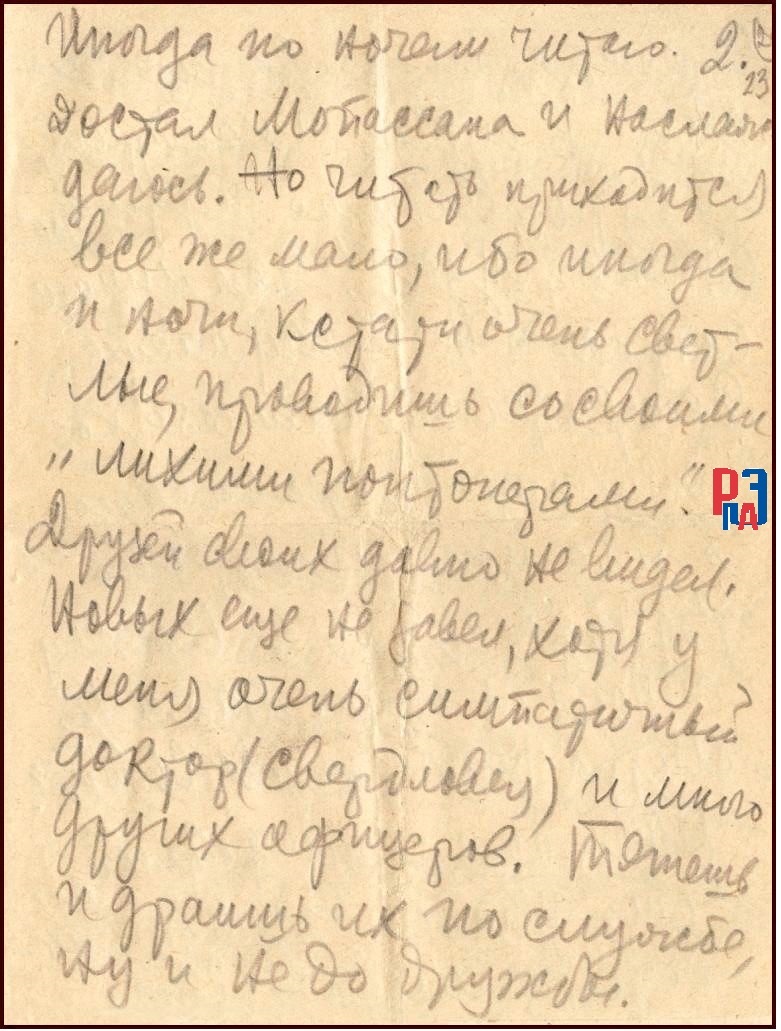 Иногда по ночам читаю. 2.
23
Достал Мопассана и наслаж
даюсь. Но читать приходится
все же мало, ибо иногда
и ночи, кстати очень свет-
лые, проводишь со своими
„лихими понтонерами".
РЭ
ПА
Друзей своих давно не видел.
Новых еще не завел, хотя у
меня очень симпатичный
доктор (свердловец) и много
других офицеров. Тянешь
и драишь их по службе,
ну и не до дружбы.